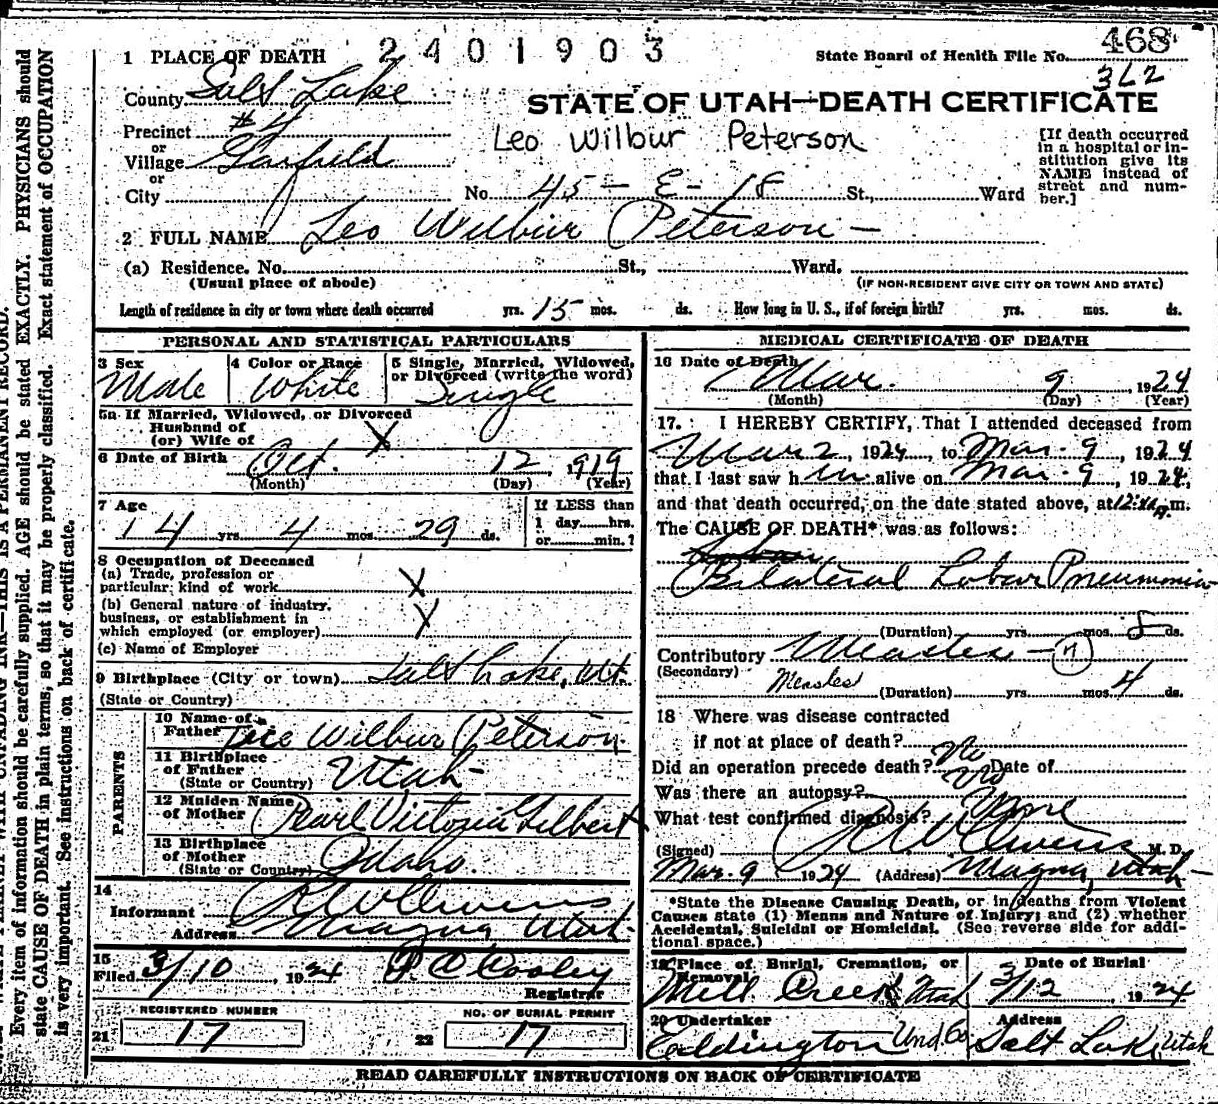 1 PLACE OF DEATH 2401903 State Board of Health File No. 468
362
County Salt Lake
STATE OF UTAH—DEATH CERTIFICATE
Precinct #4
or
Village Garfield
or
City
Leo Wilbur Peterson
[If death occurred in a hospital or institution give its NAME instead of street and number.]
No. 45-E-18 St., Ward
2 FULL NAME Leo Wilbur Peterson
(a) Residence. No. St., Ward.
(Usual place of abode) (IF NON-RESIDENT GIVE CITY OR TOWN AND STATE)
Length of residence in city or town where death occurred yrs. 15 mos. ds. How long in U. S., if of foreign birth? yrs. mos. ds.
PERSONAL AND STATISTICAL PARTICULARS
3 Sex Male
4 Color or Race White
5 Single, Married, Widowed, or Divorced (write the word) Single
5a If Married, Widowed, or Divorced
Husband of
(or) Wife of X
6 Date of Birth Oct. 12, 1919
(Month) (Day) (Year)
7 Age
14 yrs. 4 mos. 29 ds.
If LESS than
1 day......hrs.
or......min.?
8 Occupation of Deceased
(a) Trade, profession or
particular kind of work X
(b) General nature of industry,
business, or establishment in
which employed (or employer) X
(c) Name of Employer
9 Birthplace (City or town) Salt Lake, Ut.
(State or Country)
PARENTS
10 Name of
Father Wilbur Peterson
11 Birthplace
of Father Utah
(State or Country)
12 Maiden Name
of Mother Pearl Victoria Gilbert
13 Birthplace
of Mother Idaho.
(State or Country)
14
Informant
Address Magna, Utah
15
Filed 3/10, 1924
Registrar
REGISTERED NUMBER
21 17
NO. OF BURIAL PERMIT
22 17
MEDICAL CERTIFICATE OF DEATH
16 Date of Death
Mar. 9 1924
(Month) (Day) (Year)
17. I HEREBY CERTIFY, That I attended deceased from
Mar 2, 1924, to Mar. 9, 1924
that I last saw him alive on Mar. 9, 1924,
and that death occurred, on the date stated above, at m.
The CAUSE OF DEATH* was as follows:
Bilateral Lobar Pneumonia
(Duration) yrs. mos. 8 ds.
Contributory Measles - 7
(Secondary) Measles
(Duration) yrs. mos. 4 ds.
18 Where was disease contracted
if not at place of death?
Did an operation precede death? No Date of
Was there an autopsy? No
What test confirmed diagnosis? None
(Signed) M. D.
Mar. 9 1924 (Address) Magna, Utah
*State the Disease Causing Death, or in deaths from Violent
Causes state (1) Means and Nature of Injury; and (2) whether
Accidental, Suicidal or Homicidal. (See reverse side for additional space.)
19 Place of Burial, Cremation, or Removal
Mill Creek Utah
Date of Burial
3/12 1924
20 Undertaker
Eddington Und. Co
Address
Salt Lake, Utah
READ CAREFULLY INSTRUCTIONS ON BACK OF CERTIFICATE
Every item of information should be carefully supplied. AGE should be stated EXACTLY. PHYSICIANS should
state CAUSE OF DEATH in plain terms, so that it may be properly classified. Exact statement of OCCUPATION
is very important. See instructions on back of certificate.